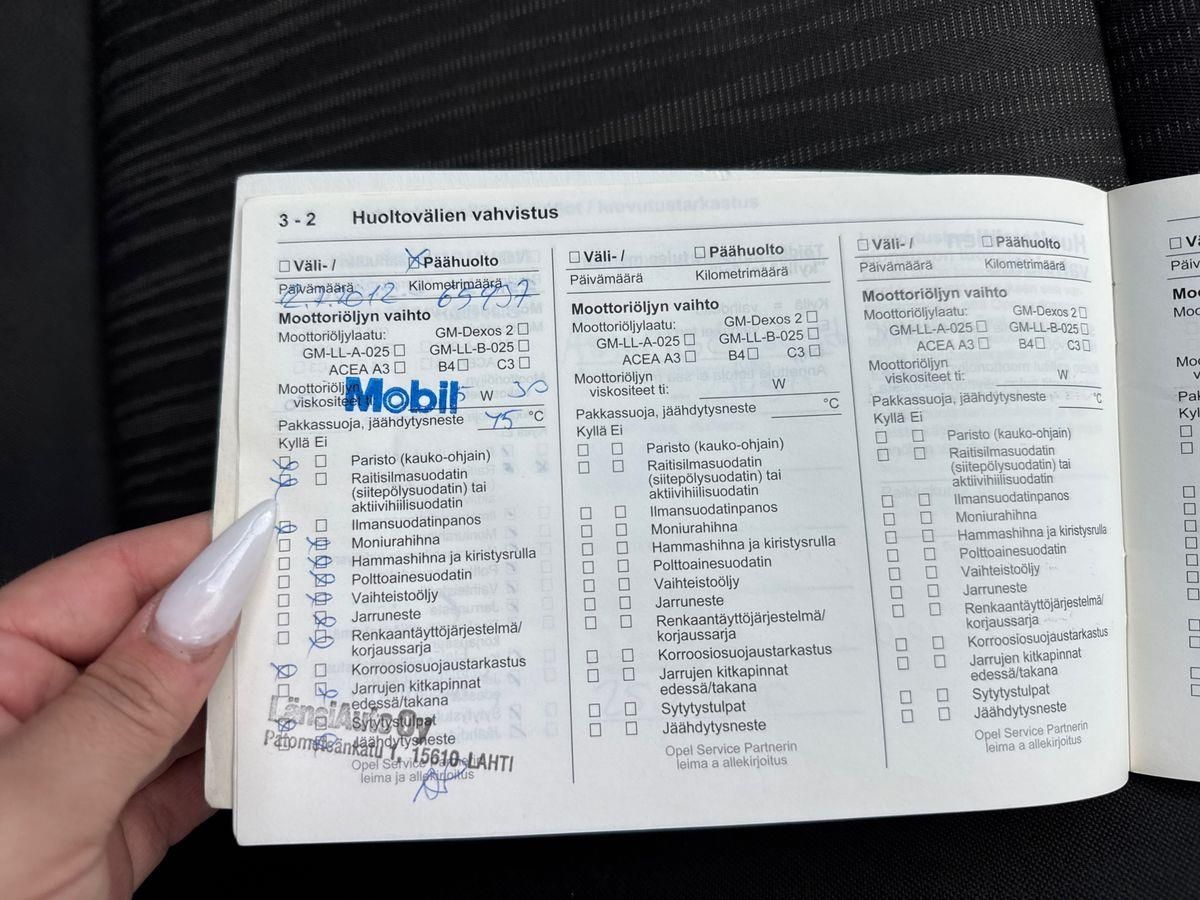 3 - 2 Huoltovälien vahvistus
☐ Väli- / ☒ Päähuolto
Päivämäärä Kilometrimäärä
2.7.2012 65937
Moottoriöljyn vaihto
Moottoriöljylaatu: GM-Dexos 2 ☐
GM-LL-A-025 ☐ GM-LL-B-025 ☐
ACEA A3 ☐ B4 ☐ C3 ☐
Moottoriöljyn
viskositeet ti: 5 W 30
Mobil
Pakkassuoja, jäähdytysneste 45 °C
Kyllä Ei
☒ ☐ Paristo (kauko-ohjain)
☒ ☐ Raitisilmasuodatin
(siitepölysuodatin) tai
aktiivihiilisuodatin
☒ ☐ Ilmansuodatinpanos
☐ ☒ Moniurahihna
☐ ☒ Hammashihna ja kiristysrulla
☐ ☒ Polttoainesuodatin
☐ ☒ Vaihteistoöljy
☐ ☒ Jarruneste
☐ ☒ Renkaantäyttöjärjestelmä/
korjaussarja
☒ ☐ Korroosiosuojaustarkastus
☐ ☒ Jarrujen kitkapinnat
edessä/takana
☒ ☐ Sytytystulpat
☐ ☒ Jäähdytysneste
LänsiAuto Oy
15610 LAHTI
Opel Service Partnerin
leima ja allekirjoitus
☐ Väli- / ☐ Päähuolto
Päivämäärä Kilometrimäärä
Moottoriöljyn vaihto
Moottoriöljylaatu: GM-Dexos 2 ☐
GM-LL-A-025 ☐ GM-LL-B-025 ☐
ACEA A3 ☐ B4 ☐ C3 ☐
Moottoriöljyn
viskositeet ti: W
Pakkassuoja, jäähdytysneste °C
Kyllä Ei
☐ ☐ Paristo (kauko-ohjain)
☐ ☐ Raitisilmasuodatin
(siitepölysuodatin) tai
aktiivihiilisuodatin
☐ ☐ Ilmansuodatinpanos
☐ ☐ Moniurahihna
☐ ☐ Hammashihna ja kiristysrulla
☐ ☐ Polttoainesuodatin
☐ ☐ Vaihteistoöljy
☐ ☐ Jarruneste
☐ ☐ Renkaantäyttöjärjestelmä/
korjaussarja
☐ ☐ Korroosiosuojaustarkastus
☐ ☐ Jarrujen kitkapinnat
edessä/takana
☐ ☐ Sytytystulpat
☐ ☐ Jäähdytysneste
Opel Service Partnerin
leima a allekirjoitus
☐ Väli- / ☐ Päähuolto
Päivämäärä Kilometrimäärä
Moottoriöljyn vaihto
Moottoriöljylaatu: GM-Dexos 2 ☐
GM-LL-A-025 ☐ GM-LL-B-025 ☐
ACEA A3 ☐ B4 ☐ C3 ☐
Moottoriöljyn
viskositeet ti: W
Pakkassuoja, jäähdytysneste °C
Kyllä Ei
☐ ☐ Paristo (kauko-ohjain)
☐ ☐ Raitisilmasuodatin
(siitepölysuodatin) tai
aktiivihiilisuodatin
☐ ☐ Ilmansuodatinpanos
☐ ☐ Moniurahihna
☐ ☐ Hammashihna ja kiristysrulla
☐ ☐ Polttoainesuodatin
☐ ☐ Vaihteistoöljy
☐ ☐ Jarruneste
☐ ☐ Renkaantäyttöjärjestelmä/
korjaussarja
☐ ☐ Korroosiosuojaustarkastus
☐ ☐ Jarrujen kitkapinnat
edessä/takana
☐ ☐ Sytytystulpat
☐ ☐ Jäähdytysneste
Opel Service Partnerin
leima a allekirjoitus